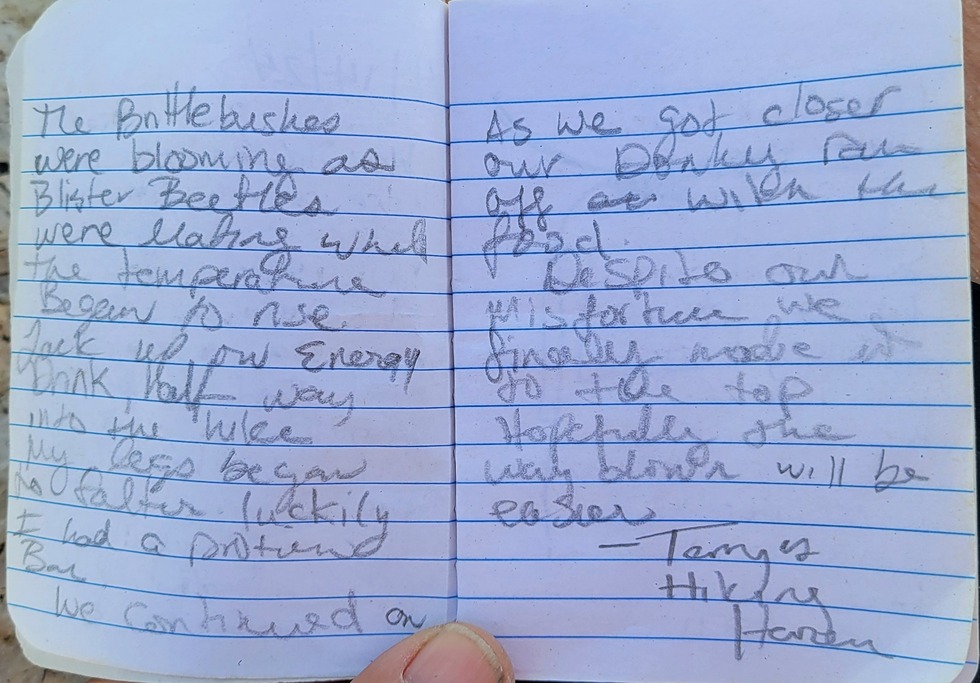 The Brittlebushes
were blooming as
Blister Beetles
were Mating whil
the temperature
Began to rise.
Jack up, our Energy
Drink, Half way
into the hike
My legs began
to falter luckily
I had a protiend
Bar
We continued on
As we got closer
our Donky ran
off with the
food.
Despite our
misfortune we
finally made it
to the top
Hopefully the
way down will be
easier
Hiking